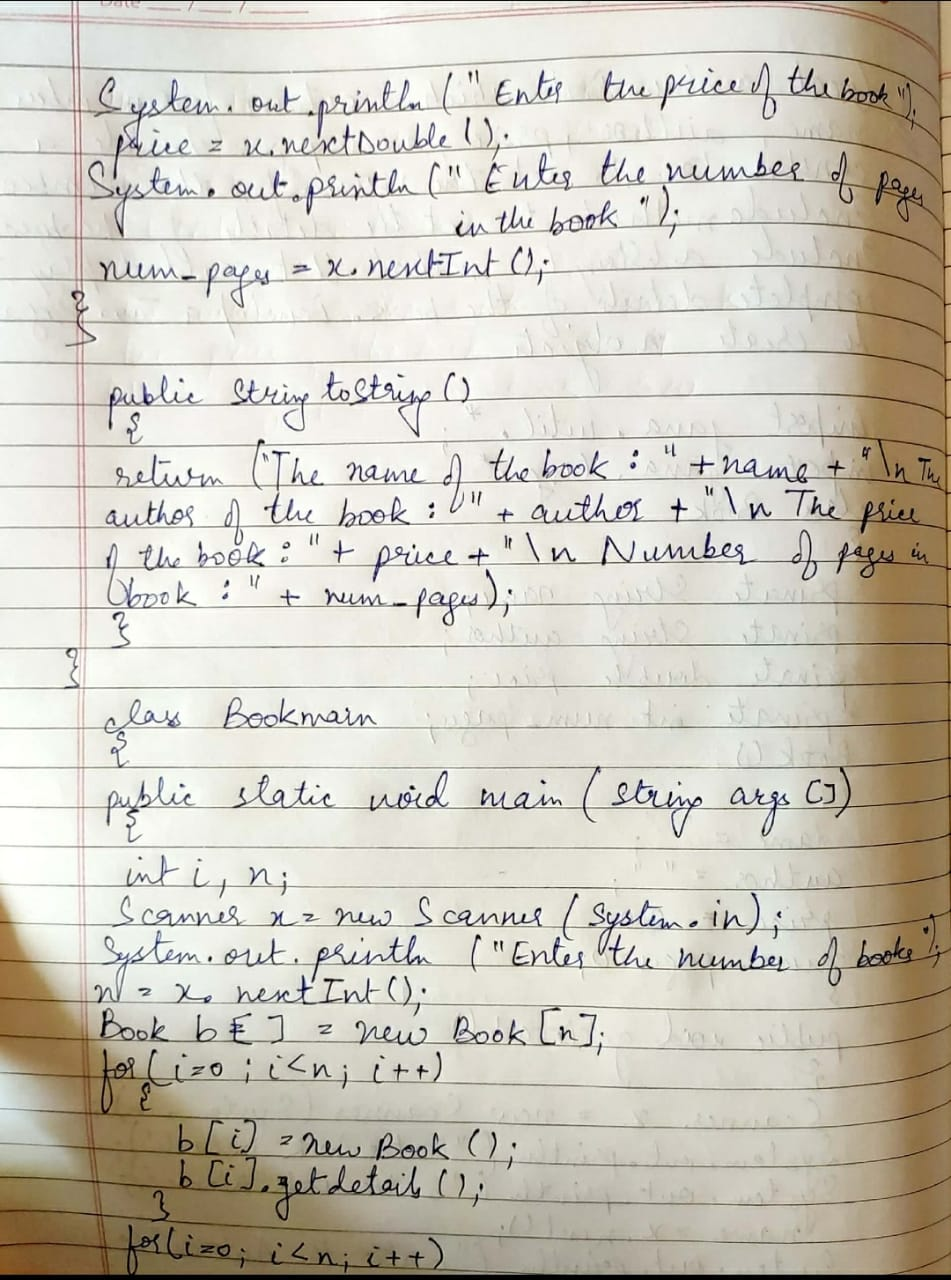 Date __/__/____
System.out.println (" Enter the price of the book ");
price = x.nextDouble ();
System.out.println (" Enter the number of pages
in the book ");
num_pages = x.nextInt ();
}
public String toString ()
{
return ("The name of the book : " + name + "\n The
author of the book : " + author + "\n The price
of the book : " + price + "\n Number of pages in
book : " + num_pages);
}
}
class Bookmain
{
public static void main ( String args [])
{
int i, n;
Scanner x = new Scanner ( System.in);
System.out.println ("Enter the number of books");
n = x.nextInt ();
Book b[ ] = new Book [n];
for (i=0 ; i<n; i++)
{
b [i] = new Book ();
b [i].getdetails ();
}
for (i=0; i<n; i++)